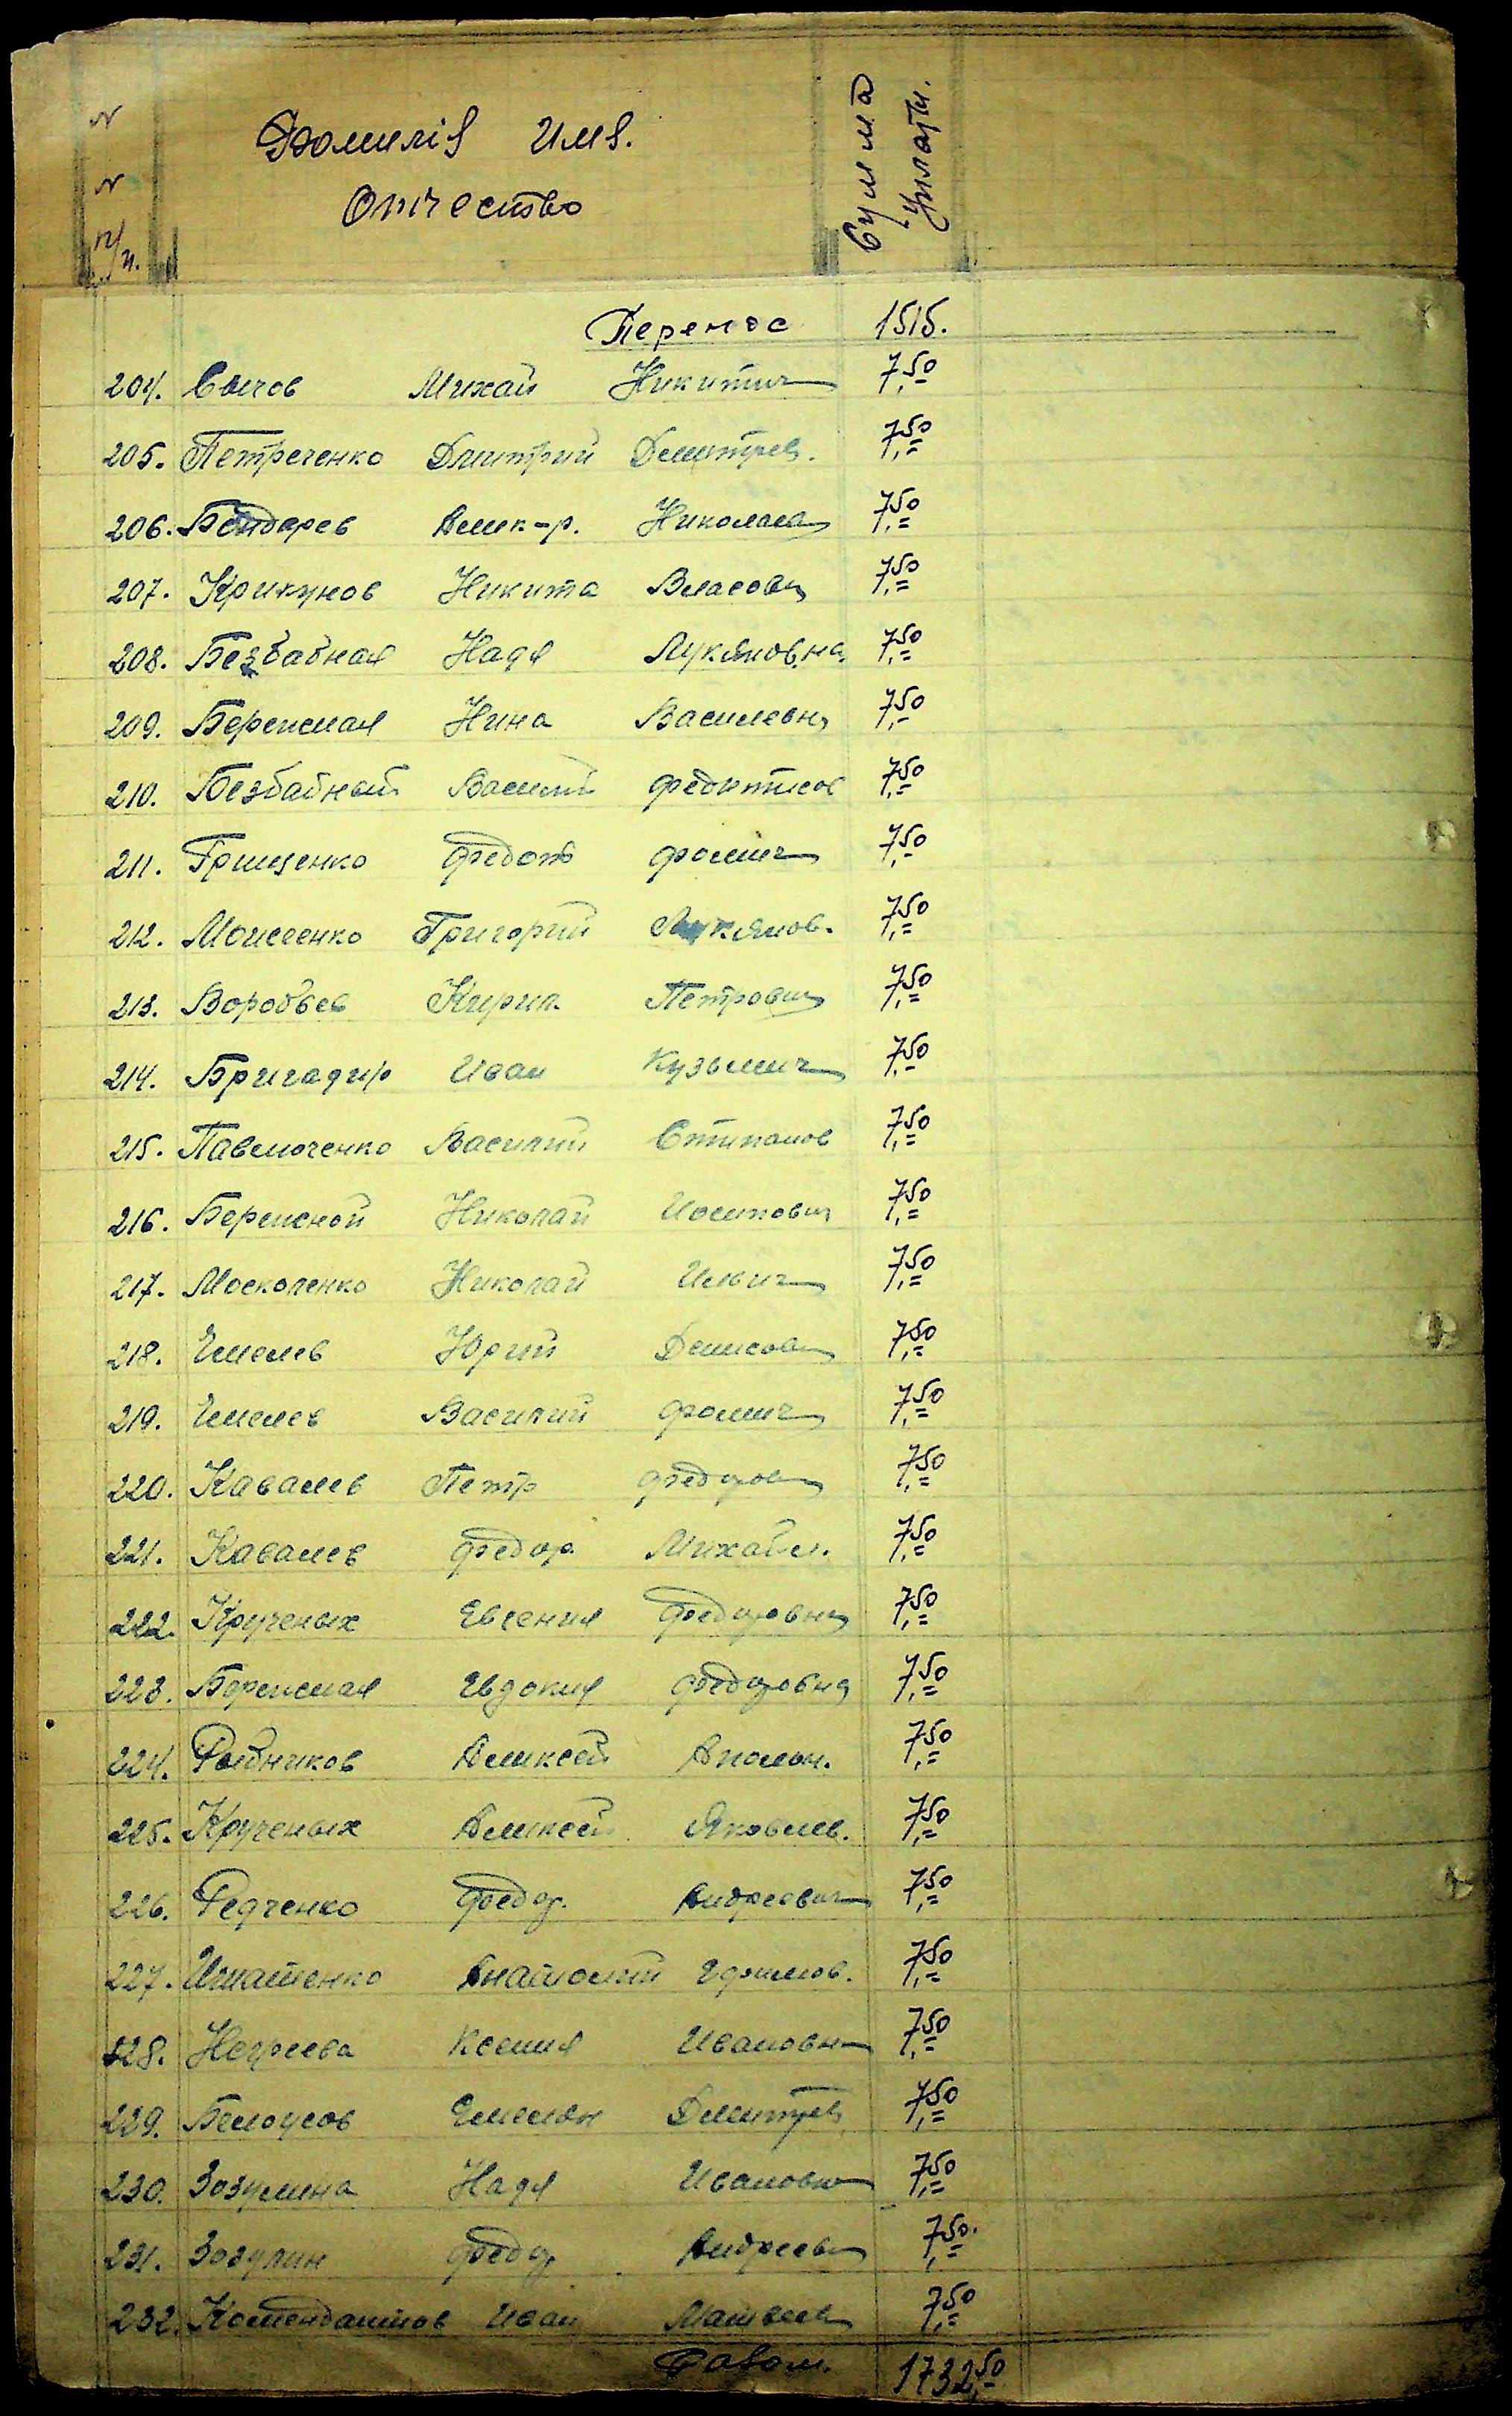 N N п/п.
Фамилія Имя.
Отчество
Сумма уплаты.
Перенос 1515.
204. Сычов Михаи Никитич 7,50
205. Петреченко Дмитрий Дмитрев. 7,50
206. Бондарев Алек-р. Николаев 7,50
207. Крикунов Никита Власович 7,50
208. Безбабная Надя Лукяновна. 7,50
209. Березная Нина Василевна 7,50
210. Безбабный Василий 7,50
211. Грищенко Федот Фомич 7,50
212. Моисеенко Григорий Лукянов. 7,50
213. Воробьев Кирил. Петрович 7,50
214. Бригадир Иван Кузьмич 7,50
215. Павлюченко Василий Стипанов 7,50
216. Николай Иосипович 7,50
217. Москоленко Николай Ильич 7,50
218. Емелев Юрий Денисович 7,50
219. Емелев Василий Фомич 7,50
220. Кавалев Петр Федоров 7,50
221. Кавалев Федор. Михайл. 7,50
222. Крученых Евгения Федоровна 7,50
223. Евдокия Федоровна 7,50
224. Рыбников Алексей 7,50
225. Крученых Алексей Яковлев. 7,50
226. Редченко Федор. Андреевич 7,50
227. Игнатенко Анатолий Ефимов. 7,50
228. Ксения Ивановна 7,50
229. Белоусов Емелян Дмитрев 7,50
230. Зозулина Надя Ивановна 7,50
231. Зозулин Федор Андреевич 7,50.
232. Комендантов Иван Матвеев 7,50
1732,50